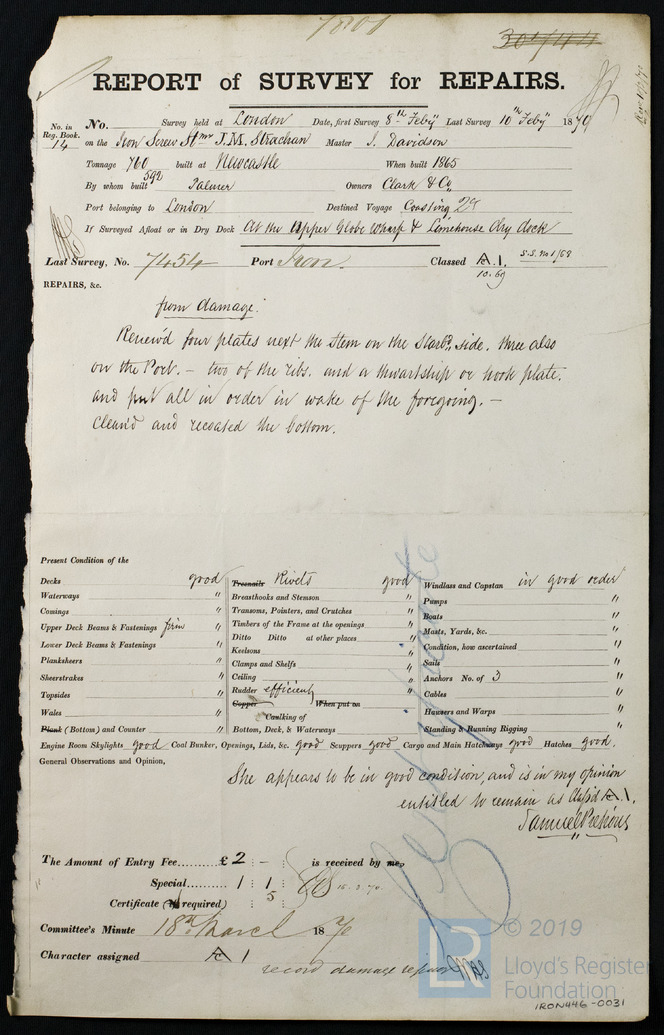 7801
30744
REPORT of SURVEY for REPAIRS.
No. in Reg. Book. 14
No. Survey held at London Date, first Survey 8th Feby Last Survey 10th Feby 1870
on the Iron Screw Stmr J.M. Strachan Master J. Davidson
Tonnage 760 built at Newcastle When built 1865
592
By whom built Palmer Owners Clark & Co
Port belonging to London Destined Voyage Coasting
If Surveyed Afloat or in Dry Dock At the Upper Globe Wharf & Limehouse Dry dock
Last Survey, No. 7454 Port Iron. Classed A.1. S.S. No 1/68
10.69
REPAIRS, &c.
from damage.
Renew'd four plates next the Stem on the Starbd side. three also
on the Port. – two of the ribs. and a thwartship or hook plate.
and put all in order in wake of the foregoing. –
Clean'd and recoated the bottom.
Present Condition of the
Decks good
Waterways "
Comings "
Upper Deck Beams & Fastenings firm "
Lower Deck Beams & Fastenings "
Planksheers "
Sheerstrakes "
Topsides "
Wales "
Plank (Bottom) and Counter "
Treenails Rivets good
Breasthooks and Stemson "
Transoms, Pointers, and Crutches "
Timbers of the Frame at the openings "
Ditto Ditto at other places "
Keelsons "
Clamps and Shelfs "
Ceiling "
Rudder efficient "
Copper When put on
Caulking of
Bottom, Deck, & Waterways "
Windlass and Capstan in good order
Pumps "
Boats "
Masts, Yards, &c. "
Condition, how ascertained "
Sails "
Anchors No. of 3 "
Cables "
Hawsers and Warps "
Standing & Running Rigging "
Engine Room Skylights good Coal Bunker, Openings, Lids, &c. good Scuppers good Cargo and Main Hatchways good Hatches good.
General Observations and Opinion,
She appears to be in good condition, and is in my opinion
entitled to remain as Class'd A.1.
Samuel Pretious
The Amount of Entry Fee £2 : – : is received by me,
Special 1 : 1 :
Certificate (if required) : 5 :
Committee's Minute 18th March 1870
Character assigned A 1
record damage repairs
© 2019
LR
Lloyd's Register
Foundation
IRON446-0031